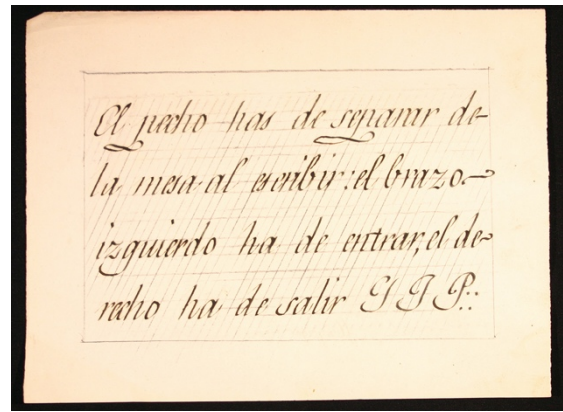 El pecho has de separar de
la mesa al escribir: el brazo
izquierdo ha de entrar, el de-
recho ha de salir G J P.: